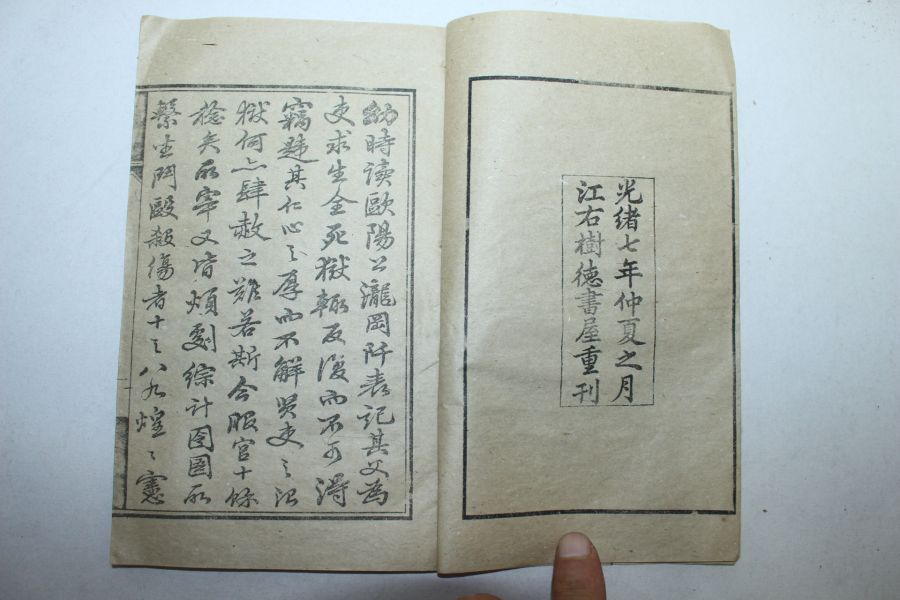 光绪七年仲夏之月
江右樹德書屋重刊
幼時读歐陽公瀧岡阡表記其父為
吏求生全死獄輒反復而不可得
竊韪其仁心之厚而不解贤吏之治
獄何亦肆赦之難若斯今服官十餘
稔矣所宰又皆煩劇綜计囹圄所
繫坐鬥毆殺傷者十之八九煌煌憲